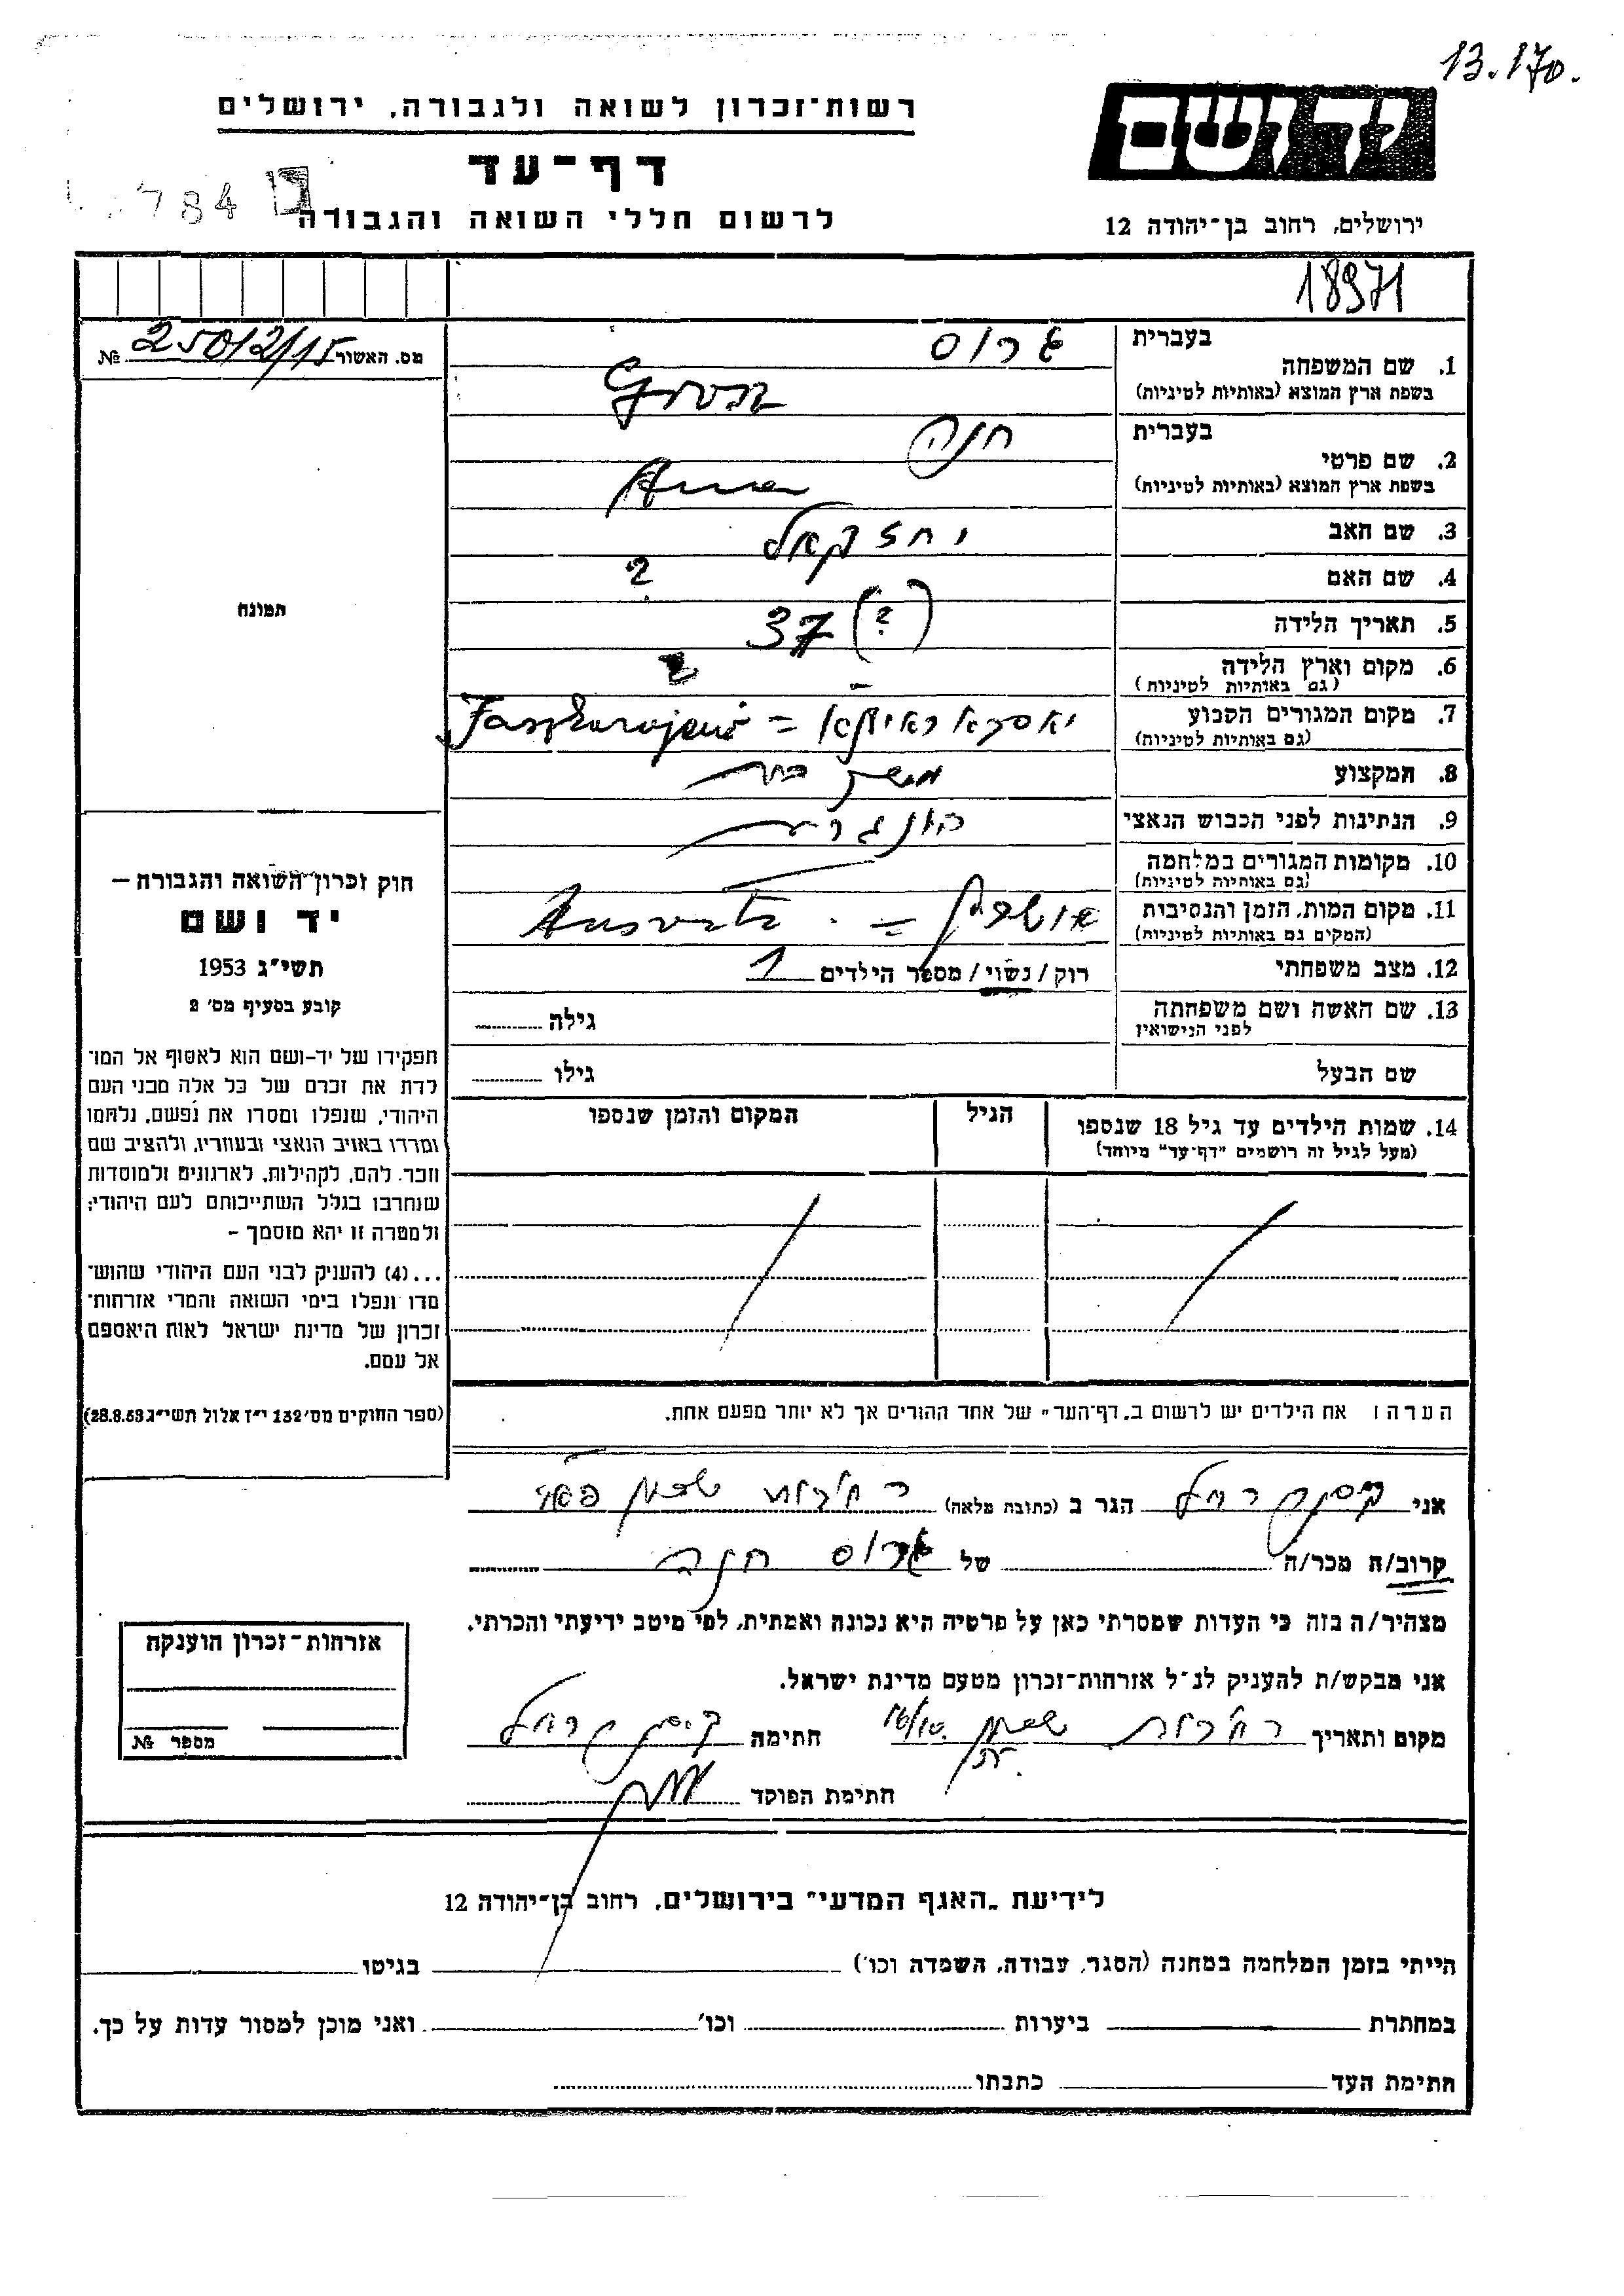 13.170.
יד ושם
ירושלים, רחוב בן־יהודה 12
רשות־זכרון לשואה ולגבורה, ירושלים
דף־עד
לרשום חללי השואה והגבורה
784
18971
מס. האשור 25012/15 №
תמונה
1. שם המשפחה
בעברית גרוס
בשפת ארץ המוצא (באותיות לטיניות) Gross
2. שם פרטי
בעברית חנה
בשפת ארץ המוצא (באותיות לטיניות) Anna
3. שם האב יחזקאל
4. שם האם ?
5. תאריך הלידה 37 (?)
6. מקום וארץ הלידה ?
(גם באותיות לטיניות)
7. מקום המגורים הקבוע
(גם באותיות לטיניות)
8. המקצוע משק בית
9. הנתינות לפני הכבוש הנאצי הונגרית
10. מקומות המגורים במלחמה
(גם באותיות לטיניות)
11. מקום המות, הזמן והנסיבות אושויץ =
(המקום גם באותיות לטיניות)
12. מצב משפחתי רוק / נשוי / מספר הילדים 1
13. שם האשה ושם משפחתה גילה
לפני הנישואין
שם הבעל גילו
14. שמות הילדים עד גיל 18 שנספו הגיל המקום והזמן שנספו
(מעל לגיל זה רושמים "דף־עד" מיוחד)
הערה: את הילדים יש לרשום ב„דף־העד" של אחד ההורים אך לא יותר מפעם אחת.
חוק זכרון השואה והגבורה –
יד ושם
תשי"ג 1953
קובע בסעיף מס' 2
תפקידו של יד-ושם הוא לאסוף אל המו־
לדת את זכרם של כל אלה מבני העם
היהודי, שנפלו ומסרו את נפשם, נלחמו
ומרדו באויב הנאצי ובעוזריו, ולהציב שם
וזכר להם, לקהילות, לארגונים ולמוסדות
שנחרבו בגלל השתייכותם לעם היהודי;
ולמטרה זו יהא מוסמך –
...(4) להעניק לבני העם היהודי שהוש־
מדו ונפלו בימי השואה והמרי אזרחות־
זכרון של מדינת ישראל לאות היאספם
אל עמם.
(ספר החוקים מס' 132 י"ז אלול תשי"ג 28.8.53)
אני רחל הגר ב (כתובת מלאה) רחובות
קרוב/ה מכר/ה של גרוס חנה
מצהיר/ה בזה כי העדות שמסרתי כאן על פרטיה היא נכונה ואמתית, לפי מיטב ידיעתי והכרתי.
אני מבקש/ת להעניק לנ"ל אזרחות־זכרון מטעם מדינת ישראל.
מקום ותאריך רחובות חתימה רחל
חתימת הפוקד
אזרחות־זכרון הוענקה
מספר №
לידיעת „האגף המדעי" בירושלים, רחוב בן־יהודה 12
הייתי בזמן המלחמה במחנה (הסגר, עבודה, השמדה וכו') בגיטו
במחתרת ביערות וכו' ואני מוכן למסור עדות על כך.
חתימת העד כתבתו